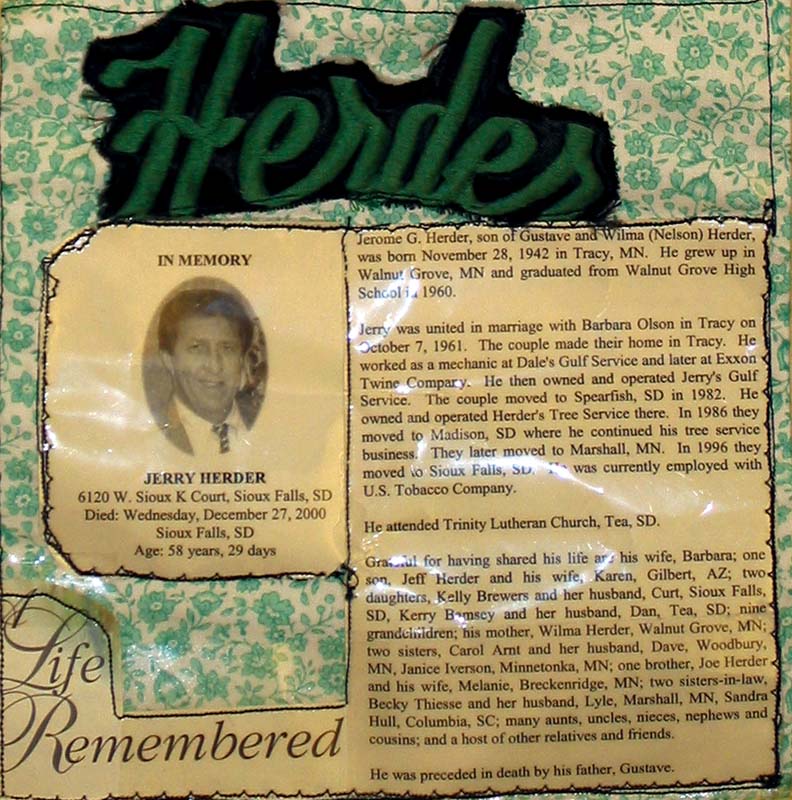 Herder
IN MEMORY
JERRY HERDER
6120 W. Sioux K Court, Sioux Falls, SD
Died: Wednesday, December 27, 2000
Sioux Falls, SD
Age: 58 years, 29 days
Jerome G. Herder, son of Gustave and Wilma (Nelson) Herder,
was born November 28, 1942 in Tracy, MN. He grew up in
Walnut Grove, MN and graduated from Walnut Grove High
School in 1960.
Jerry was united in marriage with Barbara Olson in Tracy on
October 7, 1961. The couple made their home in Tracy. He
worked as a mechanic at Dale's Gulf Service and later at Exxon
Twine Company. He then owned and operated Jerry's Gulf
Service. The couple moved to Spearfish, SD in 1982. He
owned and operated Herder's Tree Service there. In 1986 they
moved to Madison, SD where he continued his tree service
business. They later moved to Marshall, MN. In 1996 they
moved to Sioux Falls, SD. He was currently employed with
U.S. Tobacco Company.
He attended Trinity Lutheran Church, Tea, SD.
Grateful for having shared his life are his wife, Barbara; one
son, Jeff Herder and his wife, Karen, Gilbert, AZ; two
daughters, Kelly Brewers and her husband, Curt, Sioux Falls,
SD, Kerry Bamsey and her husband, Dan, Tea, SD; nine
grandchildren; his mother, Wilma Herder, Walnut Grove, MN;
two sisters, Carol Arnt and her husband, Dave, Woodbury,
MN, Janice Iverson, Minnetonka, MN; one brother, Joe Herder
and his wife, Melanie, Breckenridge, MN; two sisters-in-law,
Becky Thiesse and her husband, Lyle, Marshall, MN, Sandra
Hull, Columbia, SC; many aunts, uncles, nieces, nephews and
cousins; and a host of other relatives and friends.
He was preceded in death by his father, Gustave.
A
Life
Remembered